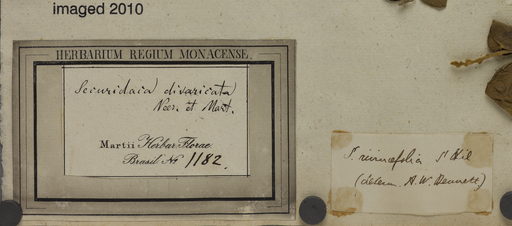 imaged 2010
HERBARIUM REGIUM MONACENSE.
Securidaca divaricata
Nees. et Mart.
Martii Herbar. Florae
Brasil. No 1182.
S. rivinaefolia St Hil
(determ. A. W. Bennett)